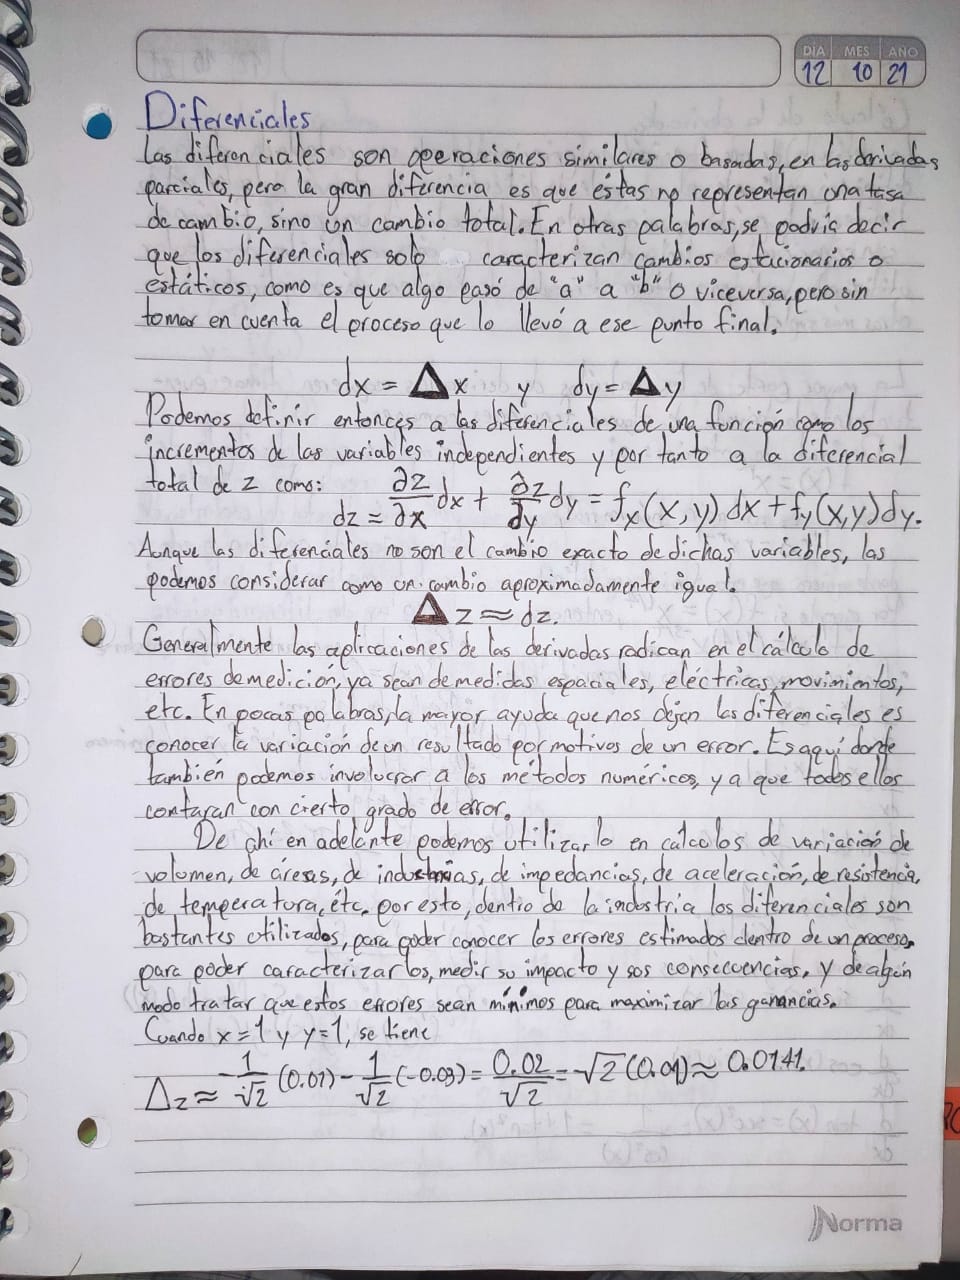 DIA MES AÑO
12 10 21
Diferenciales
Las diferenciales son operaciones similares o basadas, en las derivadas
parciales, pero la gran diferencia es que estas no representan una tasa
de cambio, sino un cambio total. En otras palabras, se podría decir
que los diferenciales solo caracterizan cambios estacionarios o
estáticos, como es que algo pasó de "a" a "b" o viceversa, pero sin
tomar en cuenta el proceso que lo llevó a ese punto final.
dx = Δx y dy = Δy
Podemos definir entonces a las diferenciales de una función como los
incrementos de las variables independientes y por tanto a la diferencial
total de z como:
dz = ∂z/∂x dx + ∂z/∂y dy = fx(x,y) dx + fy(x,y) dy.
Aunque las diferenciales no son el cambio exacto de dichas variables, las
podemos considerar como un cambio aproximadamente igual.
Δz ≈ dz.
Generalmente las aplicaciones de las derivadas radican en el cálculo de
errores de medición, ya sean de medidas espaciales, eléctricas, movimientos,
etc. En pocas palabras, la mayor ayuda que nos dejan los diferenciales es
conocer la variación de un resultado por motivos de un error. Es aquí donde
también podemos involucrar a los métodos numéricos, ya que todos ellos
contaran con cierto grado de error.
De ahí en adelante podemos utilizarlo en calculos de variación de
volumen, de áreas, de industrias, de impedancias, de aceleración, de resistencia,
de temperatura, etc. por esto, dentro de la industria los diferenciales son
bastantes utilizados, para poder conocer los errores estimados dentro de un proceso,
para poder caracterizarlos, medir su impacto y sus consecuencias, y de algún
modo tratar que estos errores sean mínimos para maximizar las ganancias.
Cuando x=1 y y=1, se tiene
Δz ≈ -1/√2 (0.01) - 1/√2 (-0.03) = 0.02/√2 = √2 (0.01) ≈ 0.0141.
Norma